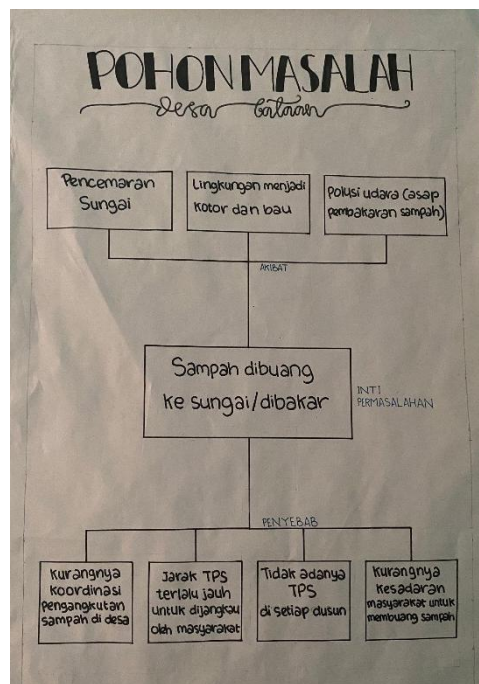 POHON MASALAH
Desa
Pencemaran
Sungai
Lingkungan menjadi
kotor dan bau
Polusi udara (asap
pembakaran sampah)
AKIBAT
Sampah dibuang
ke sungai/dibakar
INTI
PERMASALAHAN
PENYEBAB
Kurangnya
koordinasi
Pengangkutan
sampah di desa
Jarak TPS
terlalu jauh
untuk dijangkau
oleh masyarakat
Tidak adanya
TPS
di setiap dusun
Kurangnya
Kesadaran
masyarakat untuk
membuang sampah